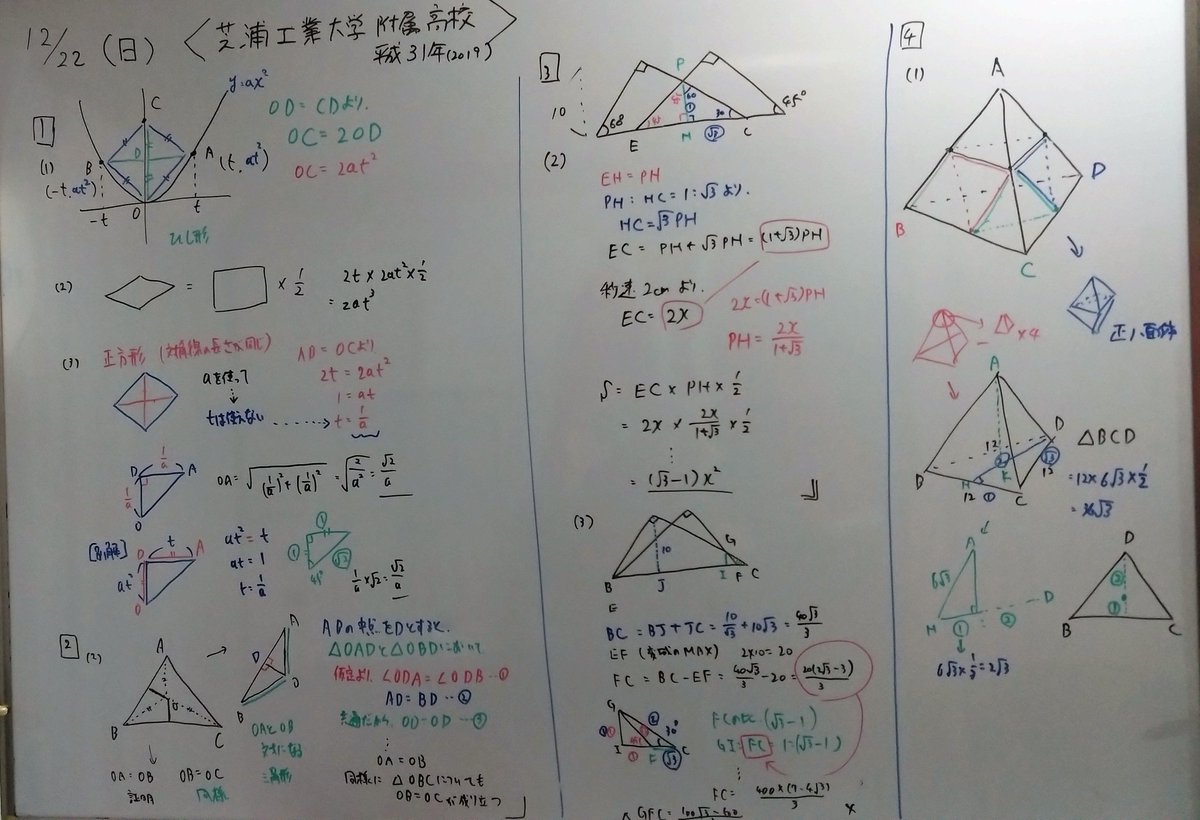 12/22（日） 〈芝浦工業大学附属高校〉
平成31年(2019)
1
(1)
y=ax²
C
D
B
(-t, at²)
A (t, at²)
-t
O
t
ひし形
OD = CDより.
OC = 2OD
OC = 2at²
(2)
= × 1/2
2t × 2at² × 1/2
= 2at³
(3) 正方形 (対角線の長さが同じ)
aを使って
tは使えない
AB = OCより
2t = 2at²
1 = at
t = 1/a
1/a
D A
1/a
O
OA = √((1/a)²+(1/a)²) = √(2/a²) = √2/a
[別解]
t
D A
at²
O
at² = t
at = 1
t = 1/a
① ① √2
45°
1/a × √2 = √2/a
2
(2)
A
O
B C
OA = OB
証明
OB = OC
同様
A
D
B
O
OAとOB
三角形
ABの中点をDとすると.
△OADと△OBDにおいて
仮定より ∠ODA = ∠ODB … ①
AD = BD … ②
共通だから. OD = OD … ③
⋮
OA = OB
同様に △OBCについても
OB = OCが成り立つ
3
10
P
60
45°
30
E H C
①
√3
(2)
EH = PH
PH : HC = 1 : √3 より.
HC = √3 PH
EC = PH + √3 PH = (1+√3)PH
秒速 2cm より.
EC = 2x
2x = (1+√3)PH
PH = 2x/(1+√3)
S = EC × PH × 1/2
= 2x × 2x/(1+√3) × 1/2
⋮
= (√3-1)x²
(3)
10
G
B J I F C
E
BC = BJ + JC = 10/√3 + 10√3 = 40√3/3
EF (変域のMAX) 2×10 = 20
FC = BC - EF = 40√3/3 - 20 = 20(2√3-3)/3
G
②
30°
I ① F C
√3
FCの比. (√3-1)
GI : FC = 1 : (√3-1)
⋮
FC² = 400×(7-4√3)/3
4
(1)
A
B
C
D
正八面体
×4
A
12
D
B
H
K
②
√3
12 ① C
12
△BCD
= 12 × 6√3 × 1/2
= 36√3
A
6√3
H
①
②
D
6√3 × 1/3 = 2√3
D
②
①
B C